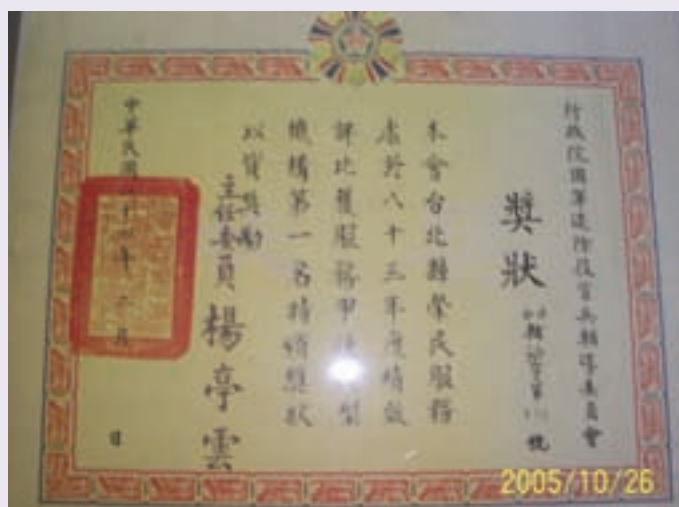 行政院國軍退除役官兵輔導委員會
獎狀
輔 字第 號
本會台北縣榮民服務
處於八十三年度績效
評比獲服務甲種 型
機構第一名特頒獎狀
以資獎勵
主任委員 楊亭雲
中華民國八十四年 月 日
2005/10/26